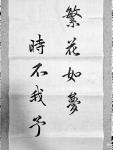 繁花如夢
時不我予